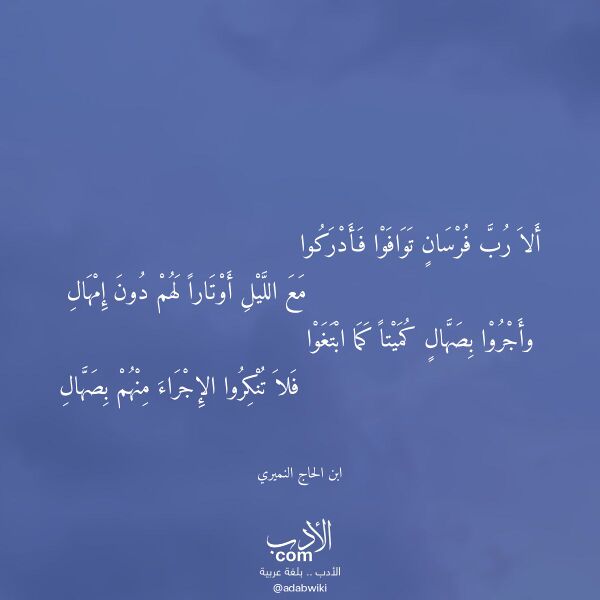 أَلاَ رُبَّ فُرْسَانٍ تَوَافَوْا فَأَدْرَكُوا
مَعَ اللَّيْلِ أَوْتَاراً لَهُمْ دُونَ إِمْهَالِ
وأَجْرُوْا بِصَهَّالٍ كُمَيْتاً كَمَا ابْتَغَوْا
فَلاَ تُنْكِرُوا الإِجْرَاءَ مِنْهُمْ بِصَهَّالِ
ابن الحاج النميري
الأدب
com
الأدب .. بلغة عربية
@adabwiki